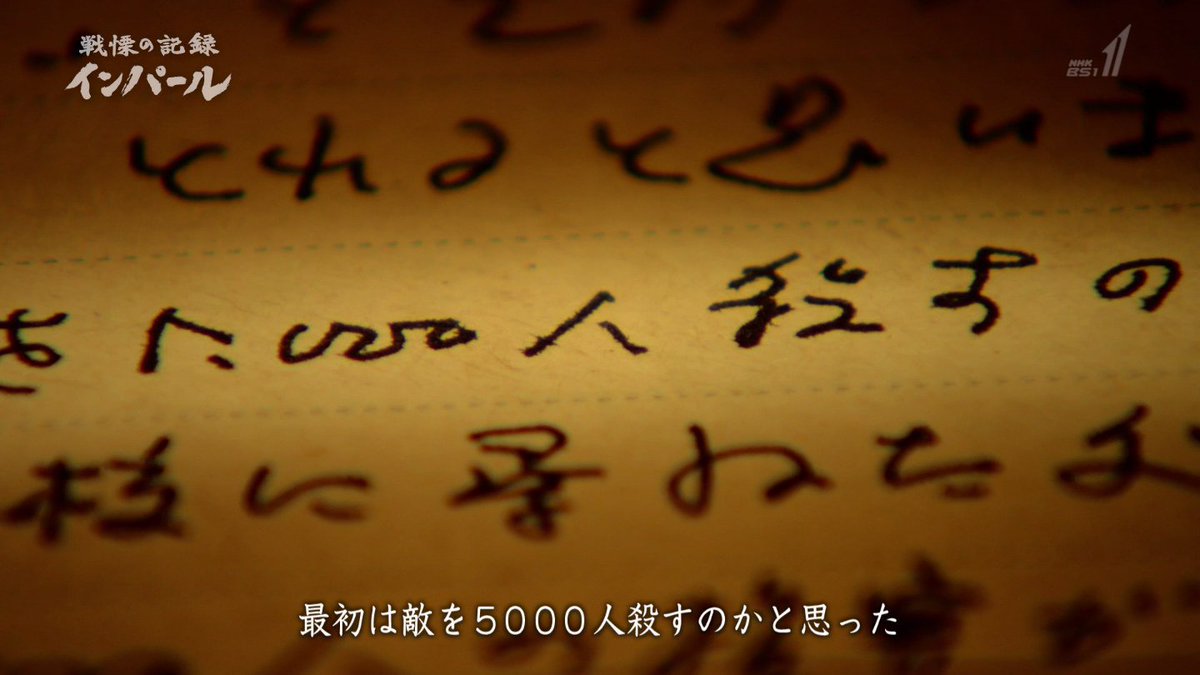 戦慄の記録
インパール
NHK
BS1
とれると思いま
5000人殺すの
校に尋ねた
最初は敵を5000人殺すのかと思った